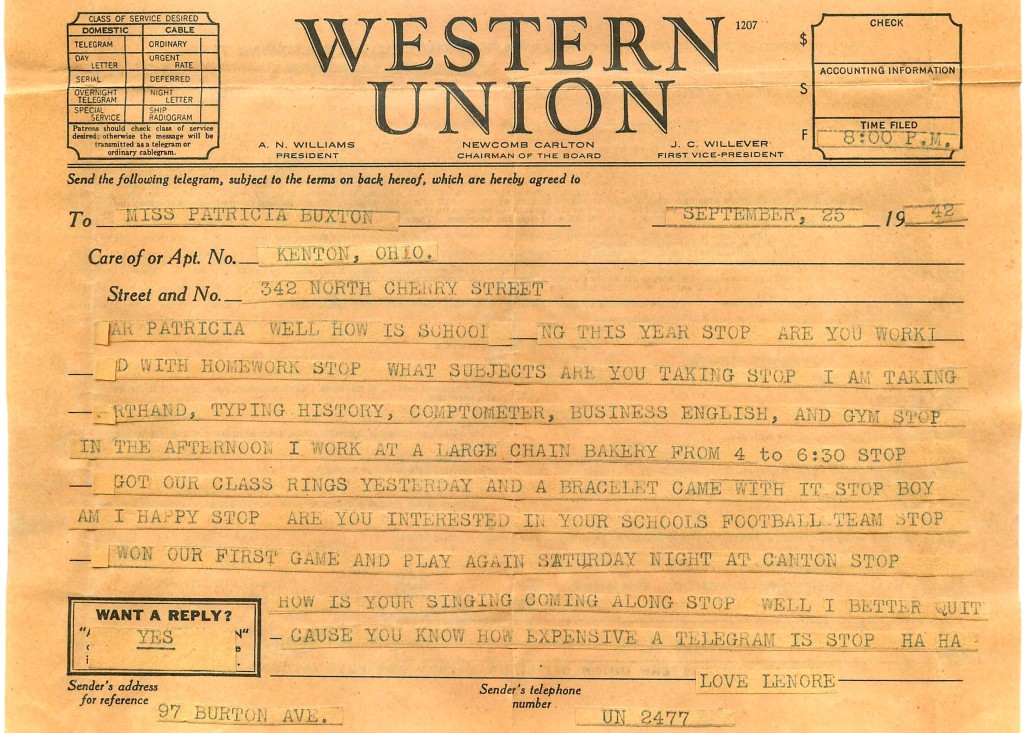 CLASS OF SERVICE DESIRED
DOMESTIC CABLE
TELEGRAM ORDINARY
DAY LETTER URGENT RATE
SERIAL DEFERRED
OVERNIGHT TELEGRAM NIGHT LETTER
SPECIAL SERVICE SHIP RADIOGRAM
Patrons should check class of service
desired; otherwise the message will be
transmitted as a telegram or
ordinary cablegram.
WESTERN
UNION
1207
A. N. WILLIAMS
PRESIDENT
NEWCOMB CARLTON
CHAIRMAN OF THE BOARD
J. C. WILLEVER
FIRST VICE-PRESIDENT
$
S
F
CHECK
ACCOUNTING INFORMATION
TIME FILED
8:00 P.M.
Send the following telegram, subject to the terms on back hereof, which are hereby agreed to
To MISS PATRICIA BUXTON SEPTEMBER, 25 19 42
Care of or Apt. No. KENTON, OHIO.
Street and No. 342 NORTH CHERRY STREET
AR PATRICIA WELL HOW IS SCHOOl NG THIS YEAR STOP ARE YOU WORKI
D WITH HOMEWORK STOP WHAT SUBJECTS ARE YOU TAKING STOP I AM TAKING
RTHAND, TYPING HISTORY, COMPTOMETER, BUSINESS ENGLISH, AND GYM STOP
IN THE AFTERNOON I WORK AT A LARGE CHAIN BAKERY FROM 4 to 6:30 STOP
GOT OUR CLASS RINGS YESTERDAY AND A BRACELET CAME WITH IT STOP BOY
AM I HAPPY STOP ARE YOU INTERESTED IN YOUR SCHOOLS FOOTBALL TEAM STOP
WON OUR FIRST GAME AND PLAY AGAIN SATURDAY NIGHT AT CANTON STOP
HOW IS YOUR SINGING COMING ALONG STOP WELL I BETTER QUIT
CAUSE YOU KNOW HOW EXPENSIVE A TELEGRAM IS STOP HA HA
LOVE LENORE
WANT A REPLY?
YES
Sender's address
for reference
97 BURTON AVE.
Sender's telephone
number
UN 2477